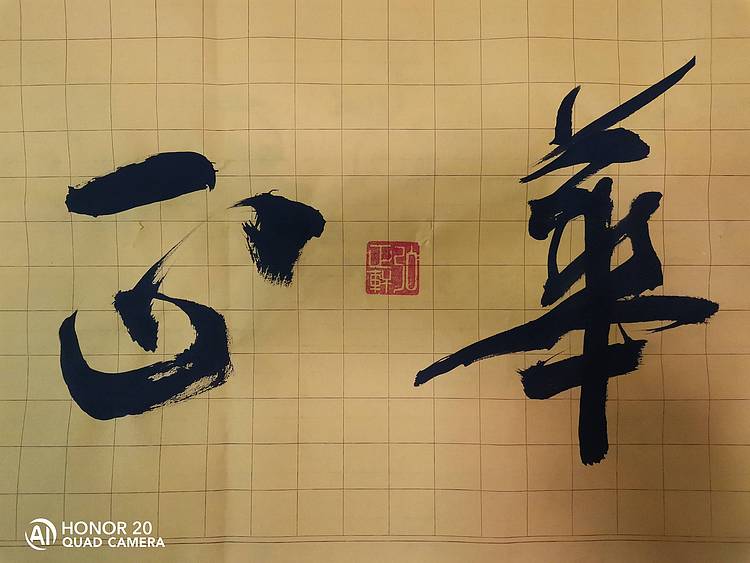 華
弘正軒
HONOR 20
QUAD CAMERA
AI